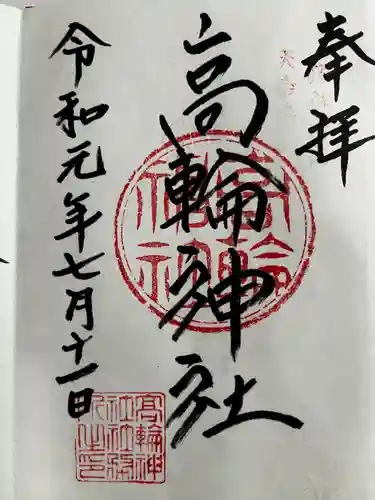 奉拝
高輪神社
令和元年七月十一日
高輪神社
高輪神
社社務
所之印